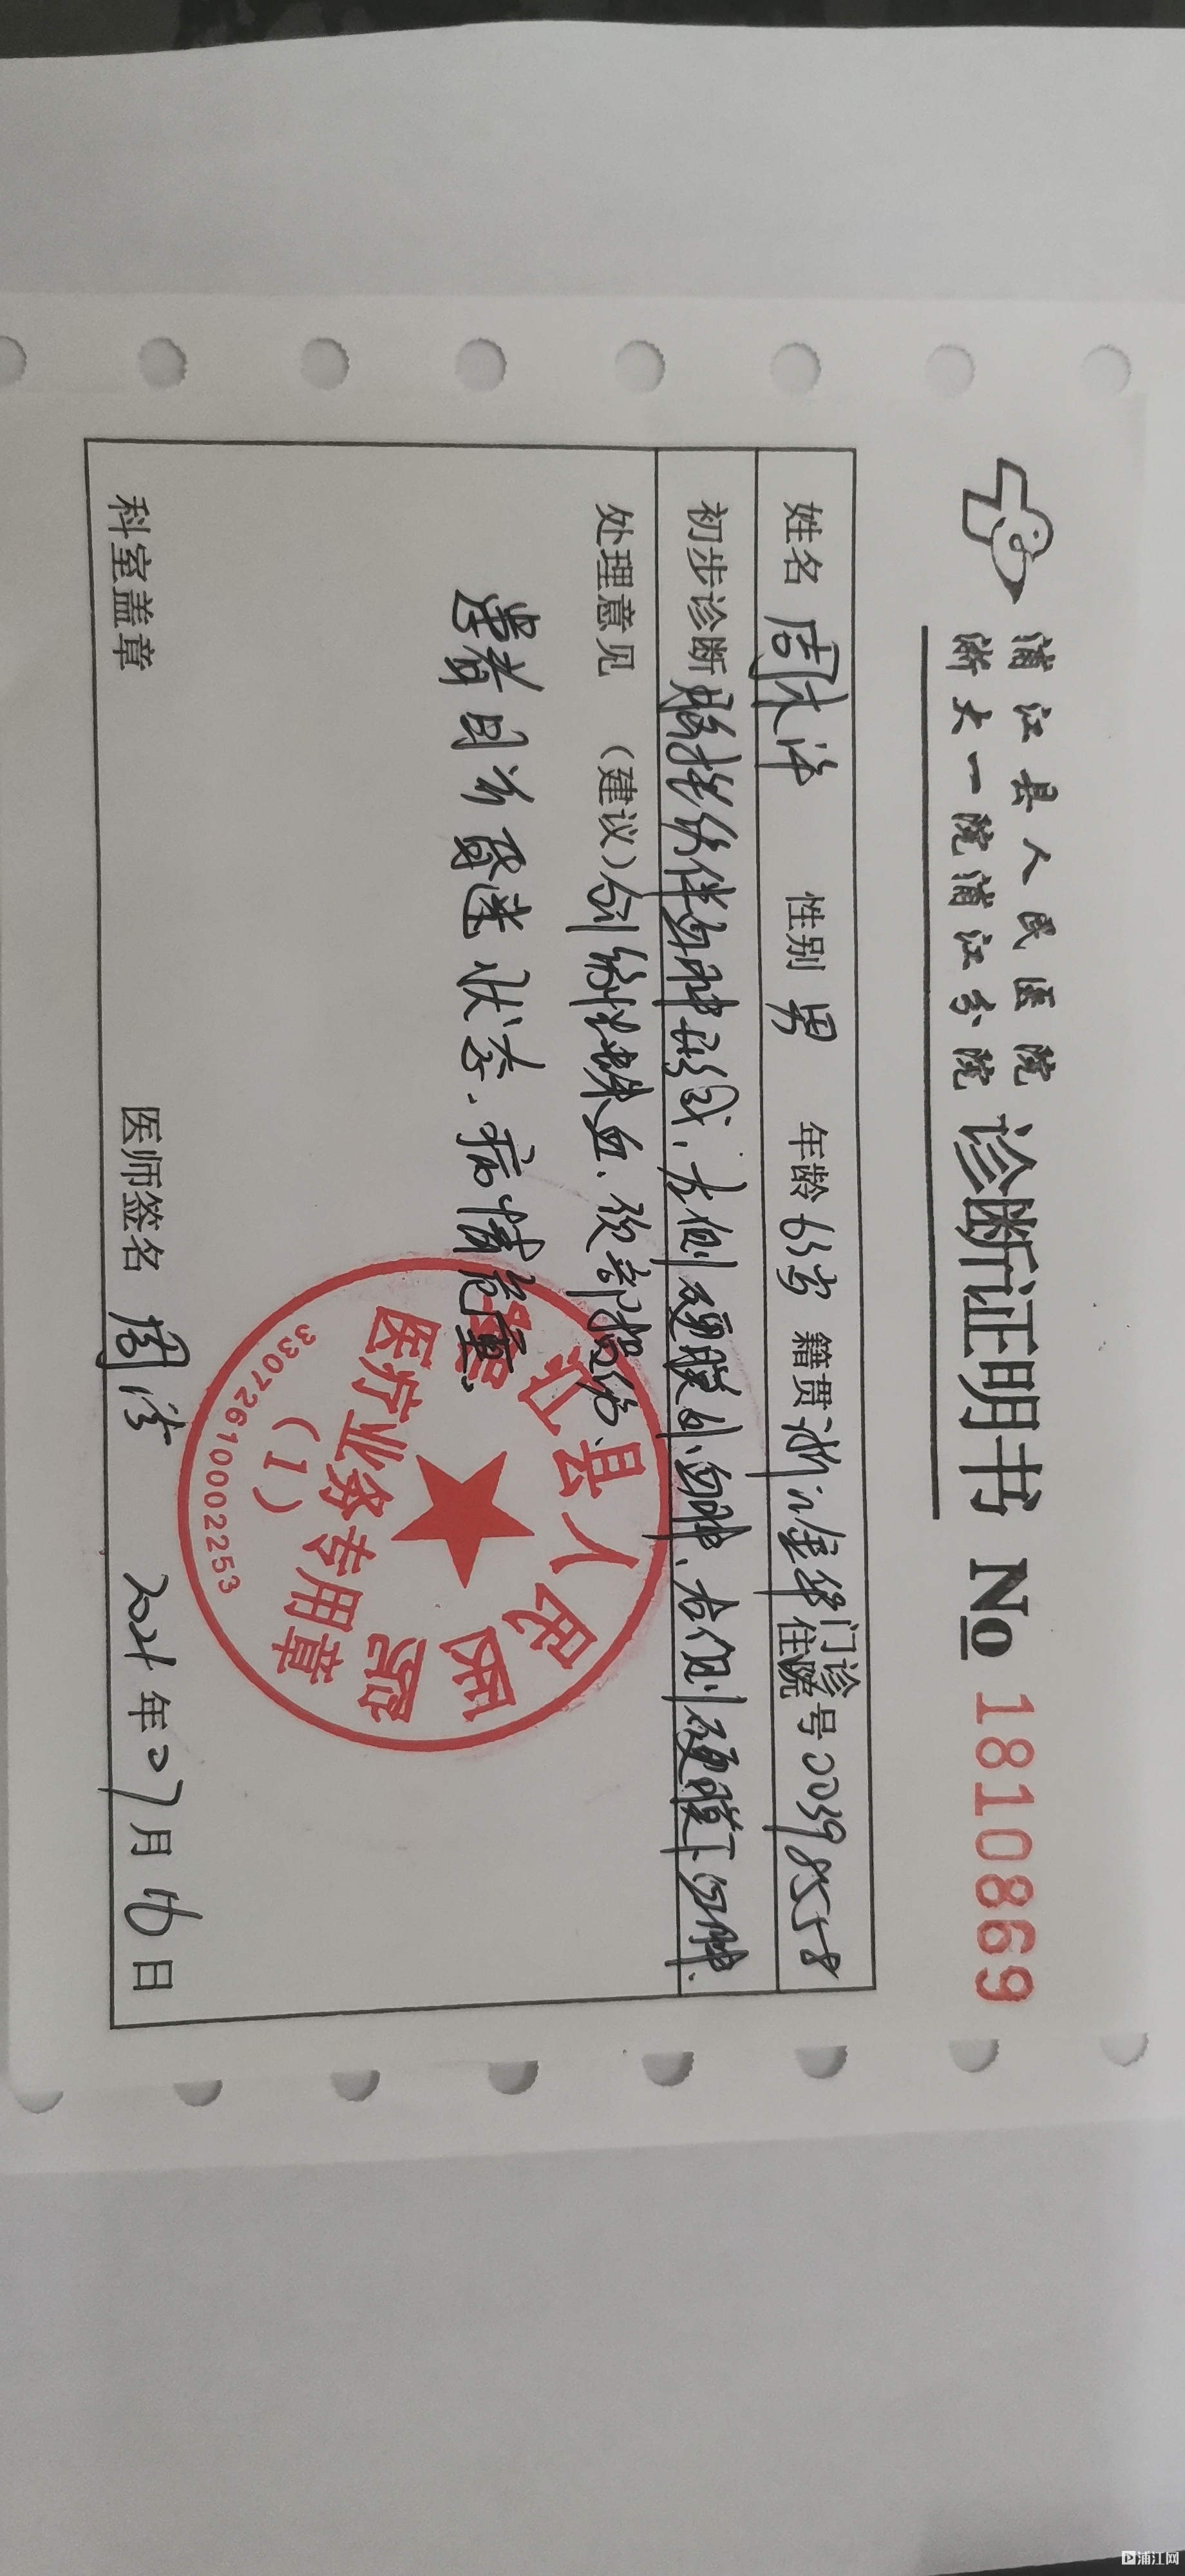 浦江县人民医院
浙大一院浦江分院
诊断证明书 No 1810869
姓名 周 性别 男 年龄 63岁 籍贯 浙江金华 门诊住院号 00398558
初步诊断 脑挫伤伴血肿形成、左侧硬膜外血肿、右侧硬膜下血肿、
处理意见 (建议) 创伤性蛛血、颈部损伤、
患者目前昏迷状态、病情危重。
浦江县人民医院
医疗业务专用章
(1)
33072610002253
科室盖章 医师签名 周 2021年07月16日
浦江网